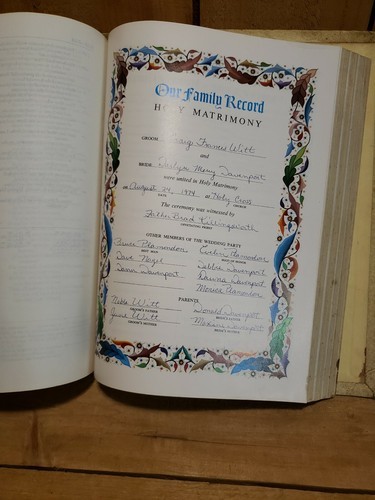 Our Family Record
HOLY MATRIMONY
GROOM Francis Witt
and
BRIDE Mary Davenport
were united in Holy Matrimony
on August 24, 1974 at Holy Cross
DATE CHURCH
The ceremony was witnessed by
Father Brad Killingsworth
OFFICIATING PRIEST
OTHER MEMBERS OF THE WEDDING PARTY
Bruce Plamondon Plamondon
BEST MAN MAID OF HONOR
Dave Nagel Debbie Davenport
Davenport Davenport
Plamondon
PARENTS
Mike Witt Donald Davenport
GROOM'S FATHER BRIDE'S FATHER
June Witt Maxine Davenport
GROOM'S MOTHER BRIDE'S MOTHER